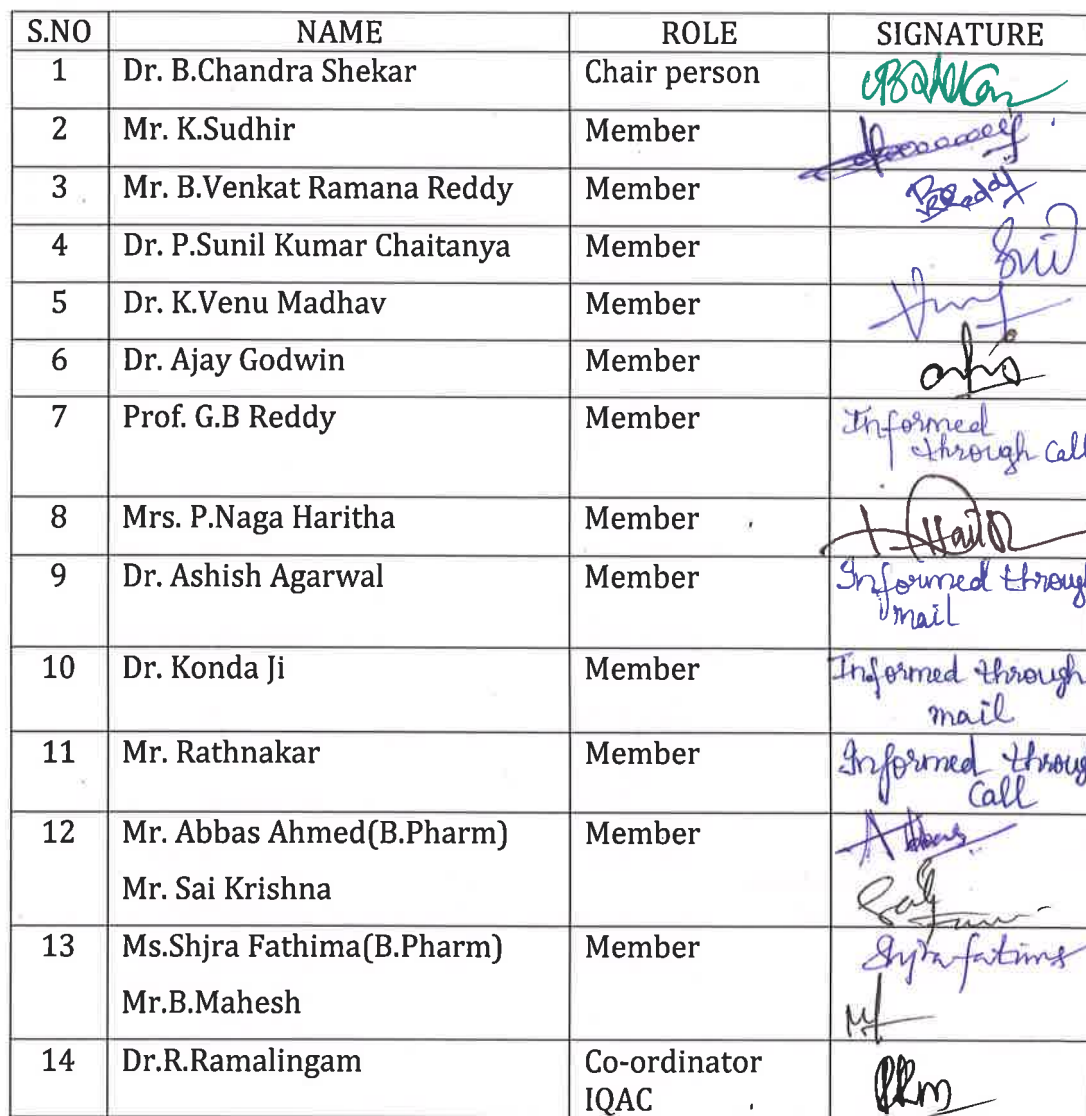 S.NO NAME ROLE SIGNATURE
1 Dr. B.Chandra Shekar Chair person
2 Mr. K.Sudhir Member
3 Mr. B.Venkat Ramana Reddy Member BVReddy
4 Dr. P.Sunil Kumar Chaitanya Member
5 Dr. K.Venu Madhav Member
6 Dr. Ajay Godwin Member
7 Prof. G.B Reddy Member Informed
through Call
8 Mrs. P.Naga Haritha Member
9 Dr. Ashish Agarwal Member Informed through
mail
10 Dr. Konda Ji Member Informed through
mail
11 Mr. Rathnakar Member Informed throug
Call
12 Mr. Abbas Ahmed(B.Pharm) Member Abbas
Mr. Sai Krishna
13 Ms.Shjra Fathima(B.Pharm) Member
Mr.B.Mahesh
14 Dr.R.Ramalingam Co-ordinator
IQAC